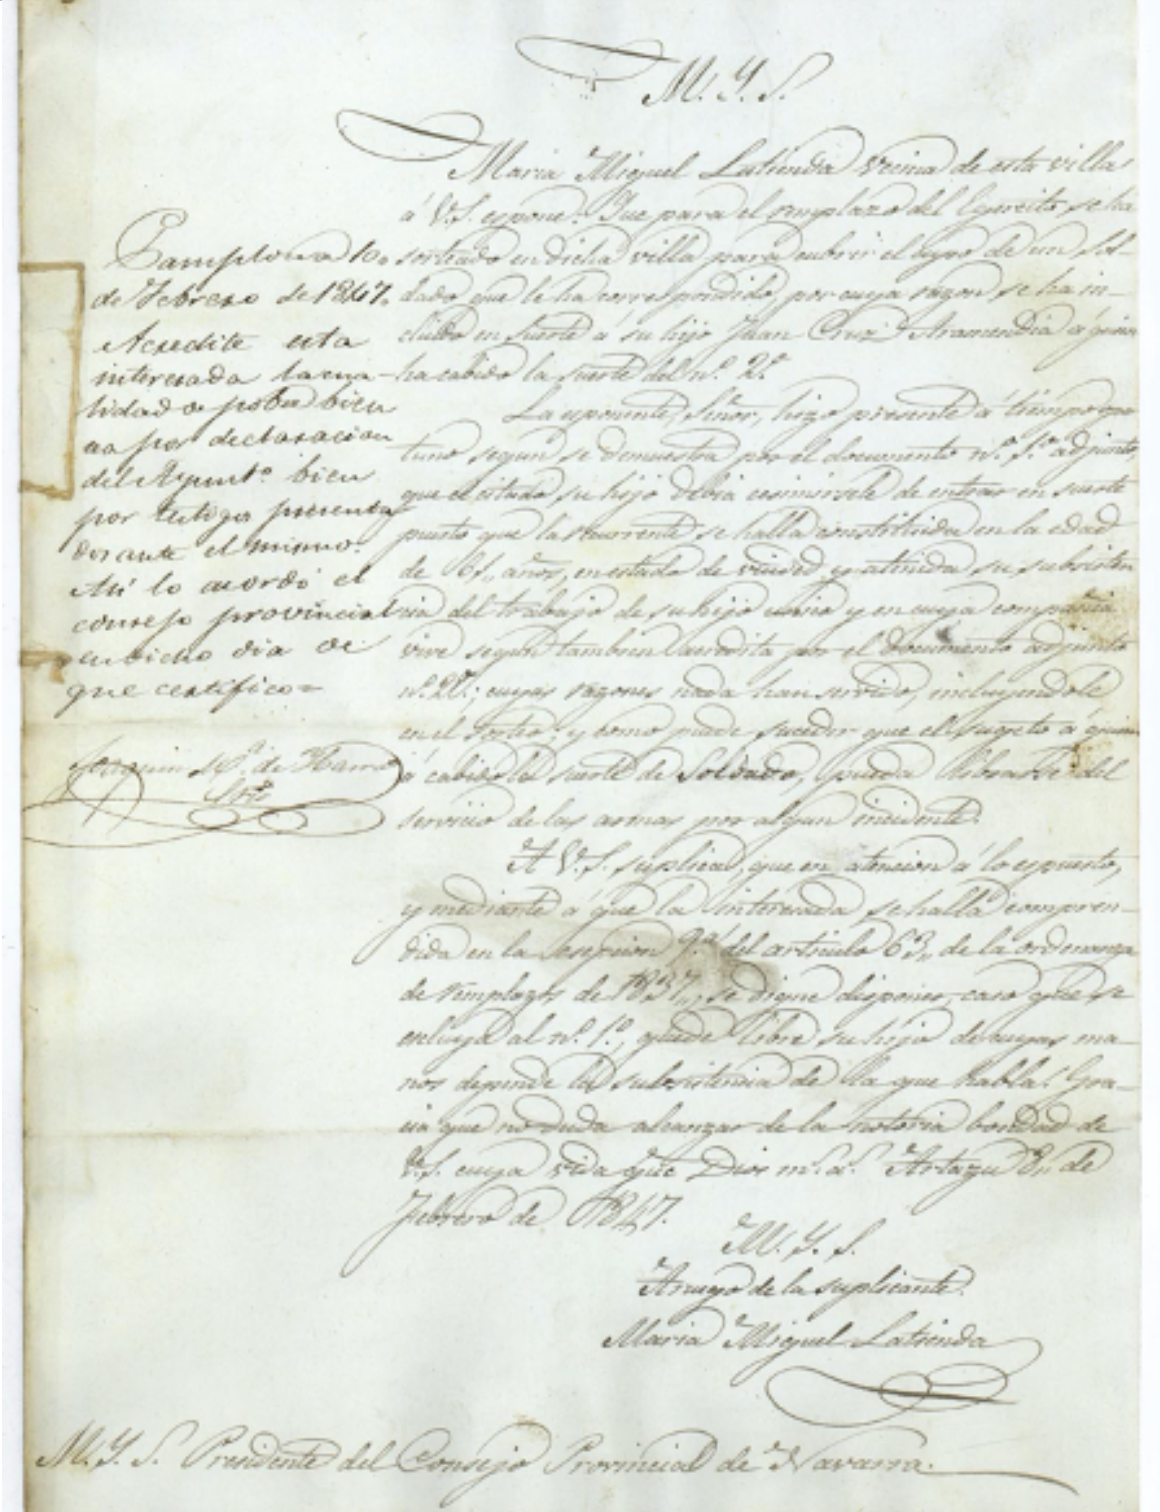 M. Y. S.
Maria Miguel Latienda vecina de esta villa
á V.S. espone: Que para el remplazo del Egercito se ha
sorteado en dicha villa para cubrir el cupo de un Sol-
dado que le ha correspondido, por cuya razon se ha in-
cluido en suerte á su hijo Juan Cruz Aramendia á quien
ha cabido la suerte del nº. 2º.
La esponente, Señor, hizo presente á tiempo opor
tuno segun se demuestra por el documento nº. 1º. adjunto,
que el citado su hijo debia esimirsele de entrar en suerte
puesto que la recurrente se halla constituida en la edad
de 61,, años, en estado de viuded y atenida su subsisten
cia del trabajo de su hijo unico y en cuya compañia
vive segun tambien acredita por el documento adjunto
nº. 2º.; cuyas razones nada han servido, incluyendole
en el sorteo: y como puede suceder que el sugeto á quien
á cabido la suerte de Soldado, pueda librarse del
servicio de las armas por algun incidente.
A V.S. suplica, que en atencion á lo espuesto,
y mediante á que la interesada se halla compren-
dida en la esepcion 9.ª del articulo 63,, de la ordenanza
de remplazos de 1837,, se digne disponer, caso que se
escluya al nº. 1º., quede libre su hijo de cuyas ma-
nos depende la subsistencia de la que habla: Gra-
cia que no duda alcanzar de la notoria bondad de
V.S. cuya vida gue Dios m.s a.s Artazu 8,, de
Febrero de 1847.
M. Y. S.
Aruego de la suplicante.
Maria Miguel Latienda
Pamplona 10,,
de Febrero de 1847.
Acredite esta
interesada la cua-
lidad de pobre bien
sea por declaracion
del Ayunt.º bien
por testigos presenta
dos ante el mismo.
Asi lo acordó el
consejo provincial
en dicho dia de
que certifico=
Joaquin M.ª de
Srio
M. Y. S. Presidente del Consejo Provincial de Navarra.